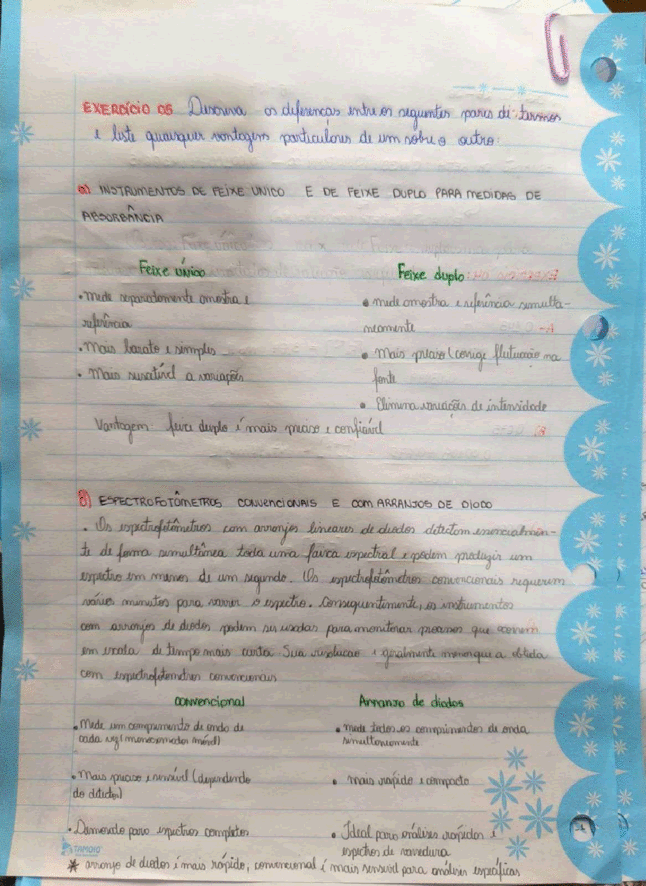 EXERCÍCIO 05 Descreva as diferenças entre os seguintes pares de termos
e liste quaisquer vantagens particulares de um sobre o outro:
a) INSTRUMENTOS DE FEIXE UNICO E DE FEIXE DUPLO PARA MEDIDAS DE
ABSORBÂNCIA
Feixe único
• mede separadamente amostra e
referência
• Mais barato e simples
• Mais suscetível a variações
Feixe duplo
• mede amostra e referência simulta-
neamente
• Mais preciso (corrige flutuação na
fonte
• Elimina variações de intensidade
Vantagem feixe duplo é mais preciso e confiável
B) ESPECTROFOTÔMETROS CONVENCIONAIS E COM ARRANJOS DE DIODO
• Os espectrofotômetros com arranjos lineares de diodos detectam essencialmen-
te de forma simultânea toda uma faixa espectral e podem produzir um
espectro em menos de um segundo. Os espectrofotômetros convencionais requerem
vários minutos para varrer o espectro. Consequentemente, os instrumentos
com arranjos de diodos podem ser usados para monitorar processos que ocorrem
em escala de tempo mais curta. Sua resolucao é geralmente menor que a obtida
com espectrofotometros convencionais
convencional
• Mede um comprimento de onda de
cada vez (monocromador móvel)
• Mais preciso e sensível (dependendo
do detector)
• Demorado para espectros completos
Arranjo de diodos
• mede todos os comprimentos de onda
simultaneamente
• mais rápido e compacto
• Ideal para análises rápidas e
espectros de varredura
TAMOIO
* arranjo de diodos é mais rápido, convencional é mais sensível para análises específicas